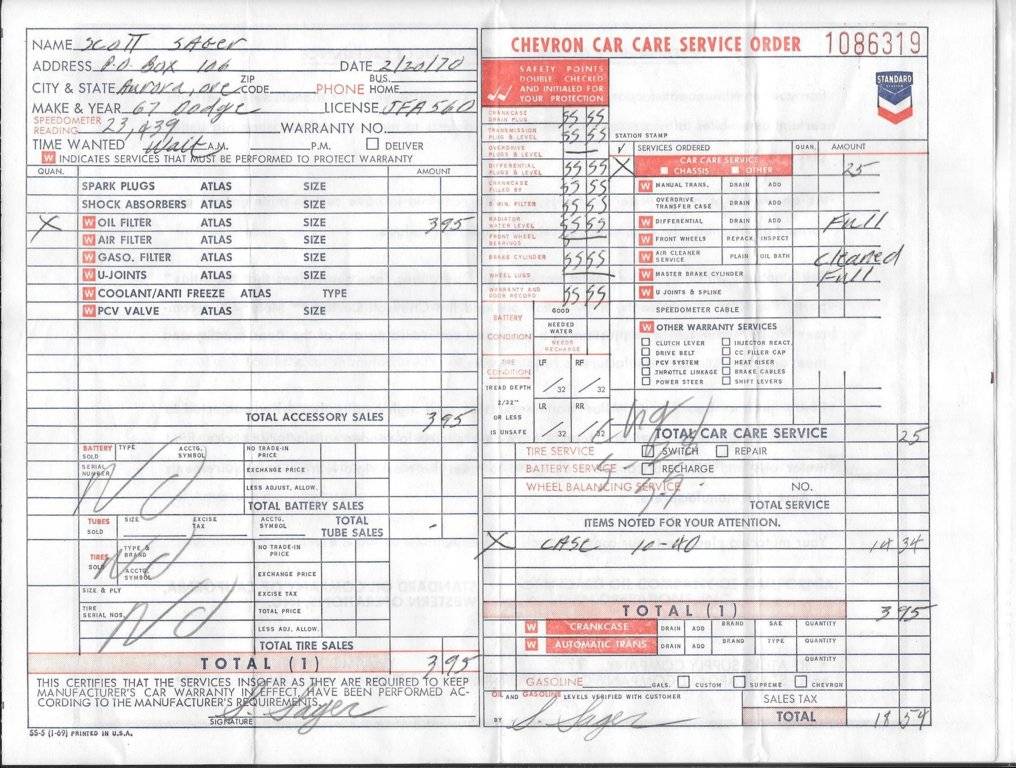 NAME Scott Sager
ADDRESS P.O. Box 106 DATE 2/20/70
CITY & STATE Aurora, ore ZIP CODE PHONE BUS. HOME
MAKE & YEAR 67 Dodge LICENSE JFA 560
SPEEDOMETER READING 23,439 WARRANTY NO.
TIME WANTED Wait A.M. P.M. DELIVER
W INDICATES SERVICES THAT MUST BE PERFORMED TO PROTECT WARRANTY
QUAN. AMOUNT
SPARK PLUGS ATLAS SIZE
SHOCK ABSORBERS ATLAS SIZE
X W OIL FILTER ATLAS SIZE 395
W AIR FILTER ATLAS SIZE
W GASO. FILTER ATLAS SIZE
W U-JOINTS ATLAS SIZE
W COOLANT/ANTI FREEZE ATLAS TYPE
W PCV VALVE ATLAS SIZE
TOTAL ACCESSORY SALES 395
BATTERY SOLD TYPE ACCTG. SYMBOL NO TRADE-IN PRICE
SERIAL NUMBER EXCHANGE PRICE
LESS ADJUST, ALLOW.
TOTAL BATTERY SALES
TUBES SOLD SIZE EXCISE TAX ACCTG. SYMBOL TOTAL TUBE SALES -
TIRES SOLD TYPE & BRAND NO TRADE-IN PRICE
ACCTG. SYMBOL EXCHANGE PRICE
SIZE & PLY EXCISE TAX
TIRE SERIAL NOS. TOTAL PRICE
LESS ADJ, ALLOW.
TOTAL TIRE SALES
TOTAL (1) 3.95
THIS CERTIFIES THAT THE SERVICES INSOFAR AS THEY ARE REQUIRED TO KEEP
MANUFACTURER'S CAR WARRANTY IN EFFECT, HAVE BEEN PERFORMED AC-
CORDING TO THE MANUFACTURER'S REQUIREMENTS.
SIGNATURE S. Sager
SS-5 (1-69) PRINTED IN U.S.A.
CHEVRON CAR CARE SERVICE ORDER 1086319
SAFETY POINTS
DOUBLE CHECKED
AND INITIALED FOR
YOUR PROTECTION
STANDARD
STATION STAMP
CRANKCASE DRAIN PLUG SS SS
TRANSMISSION PLUG & LEVEL SS SS
OVERDRIVE PLUGS & LEVEL
DIFFERENTIAL PLUGS & LEVEL SS SS
CRANKCASE FILLED BY SS SS
5 MIN. FILTER SS SS
RADIATOR WATER LEVEL SS SS
FRONT WHEEL BEARINGS
BRAKE CYLINDER SS SS
WHEEL LUGS
WARRANTY AND DOOR RECORD SS SS
BATTERY CONDITION GOOD
NEEDED WATER
NEEDS RECHARGE
TIRE CONDITION LF /32 RF /32
TREAD DEPTH 2/32" OR LESS IS UNSAFE
LR /32 RR /32
SERVICES ORDERED QUAN. AMOUNT
X CAR CARE SERVICE 25
CHASSIS OTHER
W MANUAL TRANS. DRAIN ADD
OVERDRIVE TRANSFER CASE DRAIN ADD
W DIFFERENTIAL DRAIN ADD Full
W FRONT WHEELS REPACK INSPECT
W AIR CLEANER SERVICE PLAIN OIL BATH cleaned
W MASTER BRAKE CYLINDER Full
W U JOINTS & SPLINE
SPEEDOMETER CABLE
W OTHER WARRANTY SERVICES
CLUTCH LEVER INJECTOR REACT.
DRIVE BELT CC FILLER CAP
PCV SYSTEM HEAT RISER
THROTTLE LINKAGE BRAKE CABLES
POWER STEER SHIFT LEVERS
TOTAL CAR CARE SERVICE 25
TIRE SERVICE SWITCH REPAIR
BATTERY SERVICE RECHARGE
WHEEL BALANCING SERVICE NO.
TOTAL SERVICE
ITEMS NOTED FOR YOUR ATTENTION.
X CASE 10-40 14 34
TOTAL (1) 3 95
W CRANKCASE DRAIN ADD BRAND SAE QUANTITY
W AUTOMATIC TRANS. DRAIN ADD BRAND TYPE QUANTITY
QUANTITY
GASOLINE GALS. CUSTOM SUPREME CHEVRON
OIL AND GASOLINE LEVELS VERIFIED WITH CUSTOMER SALES TAX
BY S. Sager TOTAL 18 54